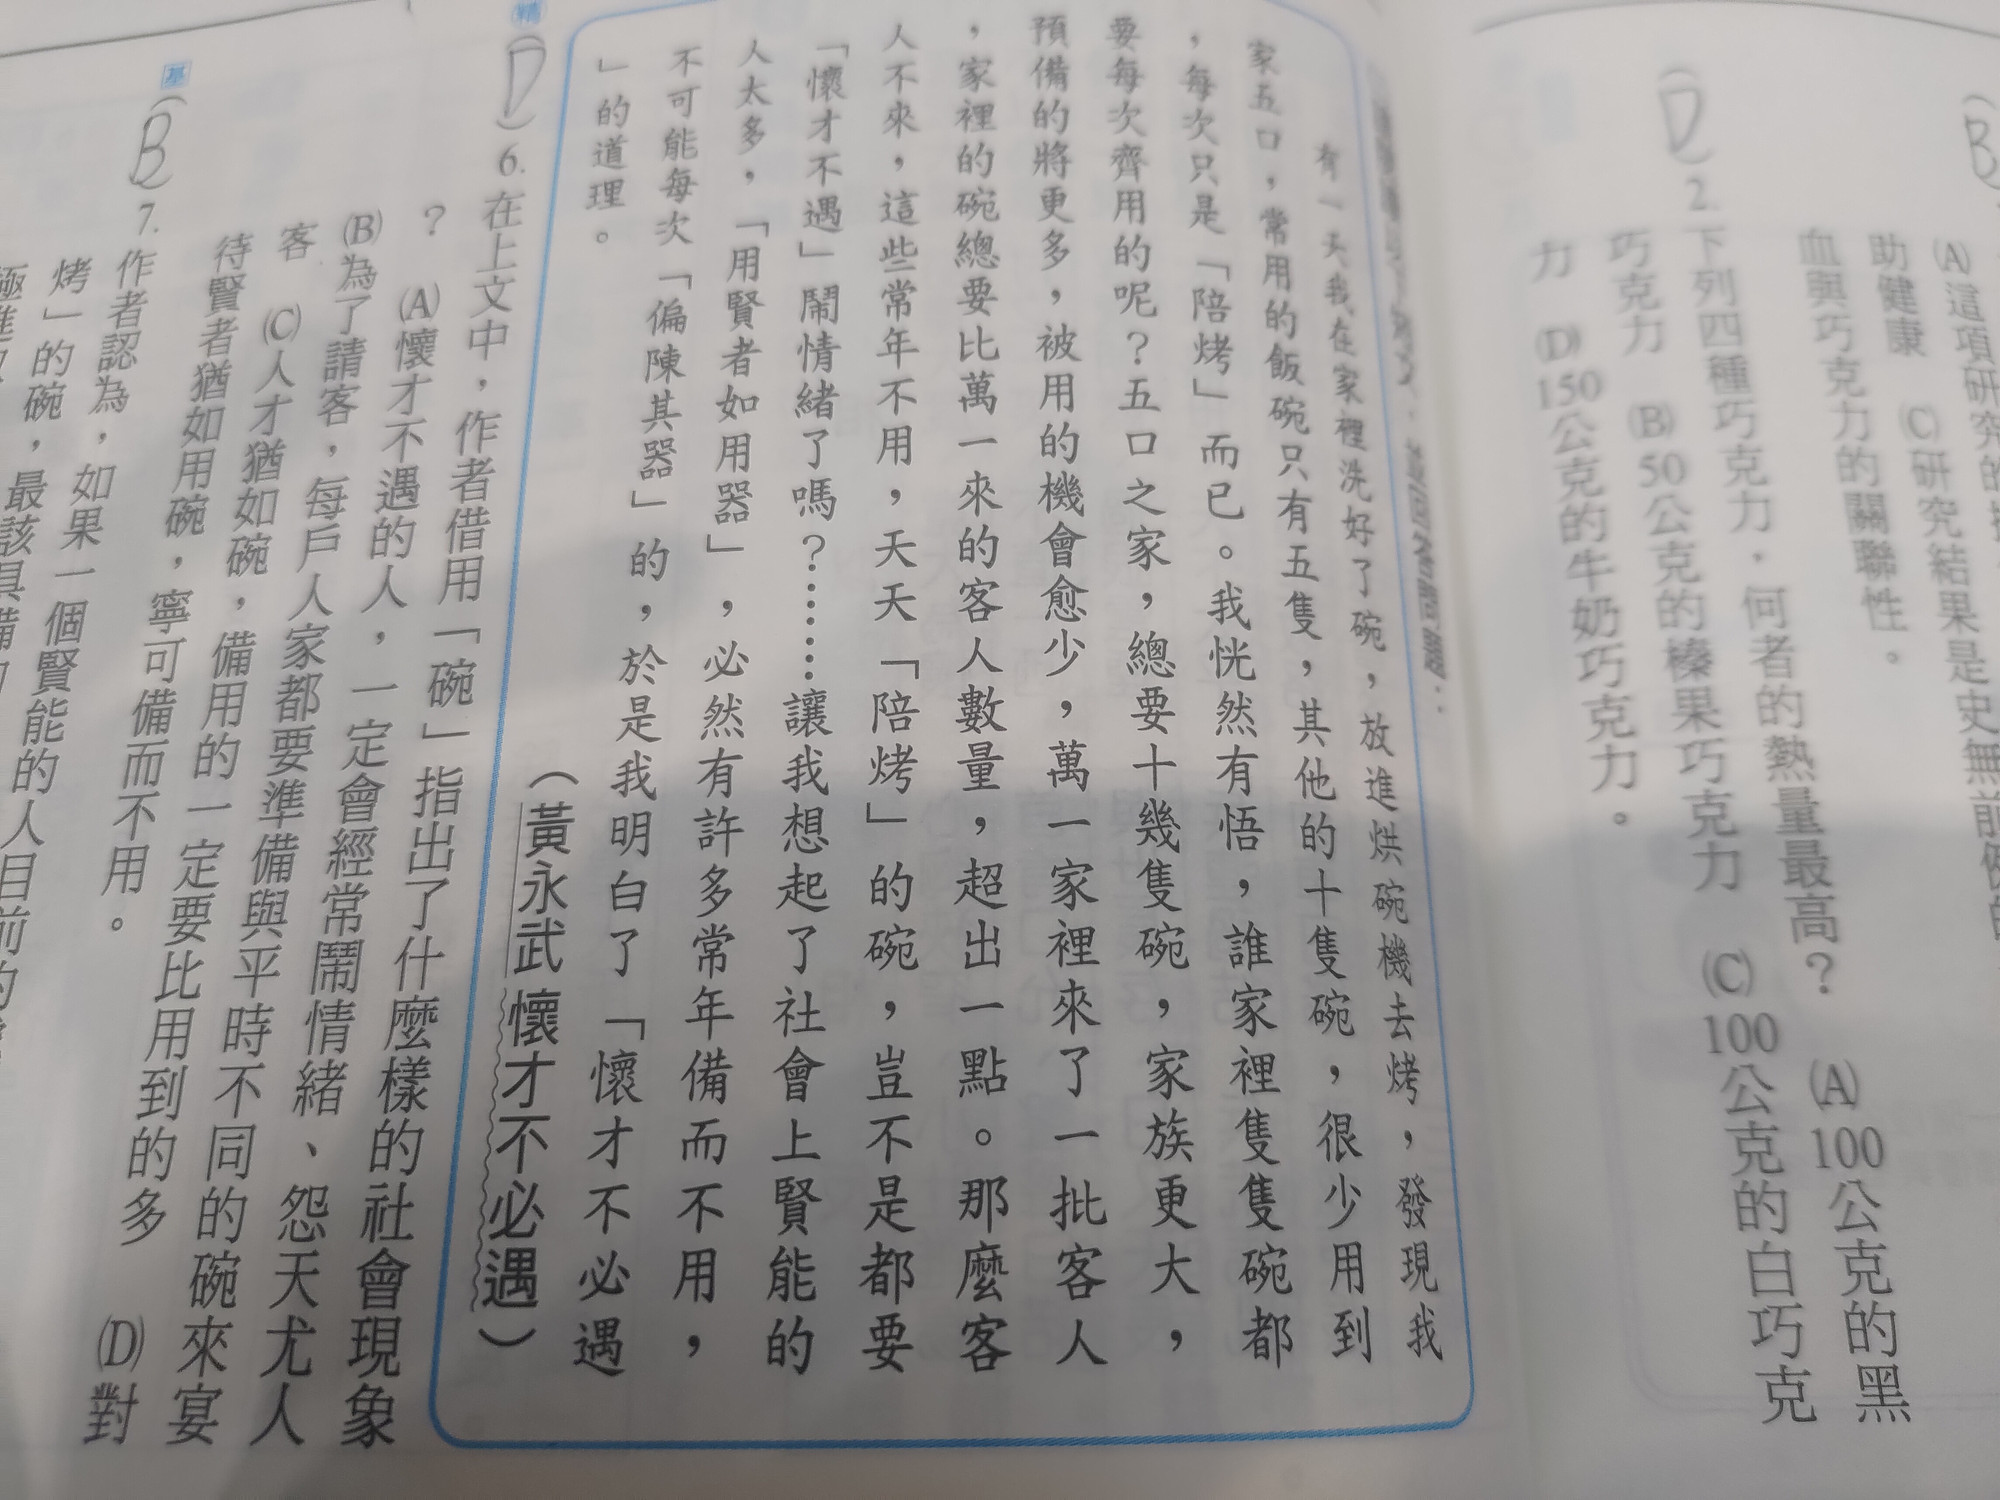 (B)
(A)這項研究的
助健康　(C)研究結果是史無前例的
血與巧克力的關聯性。
(D)2.下列四種巧克力，何者的熱量最高？　(A)100公克的黑
巧克力　(B)50公克的榛果巧克力　(C)100公克的白巧克
力　(D)150公克的牛奶巧克力。
回答問題：
有一天我在家裡洗好了碗，放進烘碗機去烤，發現我
家五口，常用的飯碗只有五隻，其他的十隻碗，很少用到
，每次只是「陪烤」而已。我恍然有悟，誰家裡隻隻碗都
要每次齊用的呢？五口之家，總要十幾隻碗，家族更大，
預備的將更多，被用的機會愈少，萬一家裡來了一批客人
，家裡的碗總要比萬一來的客人數量，超出一點。那麼客
人不來，這些常年不用，天天「陪烤」的碗，豈不是都要
「懷才不遇」鬧情緒了嗎？……讓我想起了社會上賢能的
人太多，「用賢者如用器」，必然有許多常年備而不用，
不可能每次「偏陳其器」的，於是我明白了「懷才不必遇
」的道理。
（黃永武懷才不必遇）
精(D)6.在上文中，作者借用「碗」指出了什麼樣的社會現象
？　(A)懷才不遇的人，一定會經常鬧情緒、怨天尤人
(B)為了請客，每戶人家都要準備與平時不同的碗來宴
客　(C)人才猶如碗，備用的一定要比用到的多　(D)對
待賢者猶如用碗，寧可備而不用。
基(B)7.作者認為，如果一個賢能的人目前的
烤」的碗，最該具備的
極進取